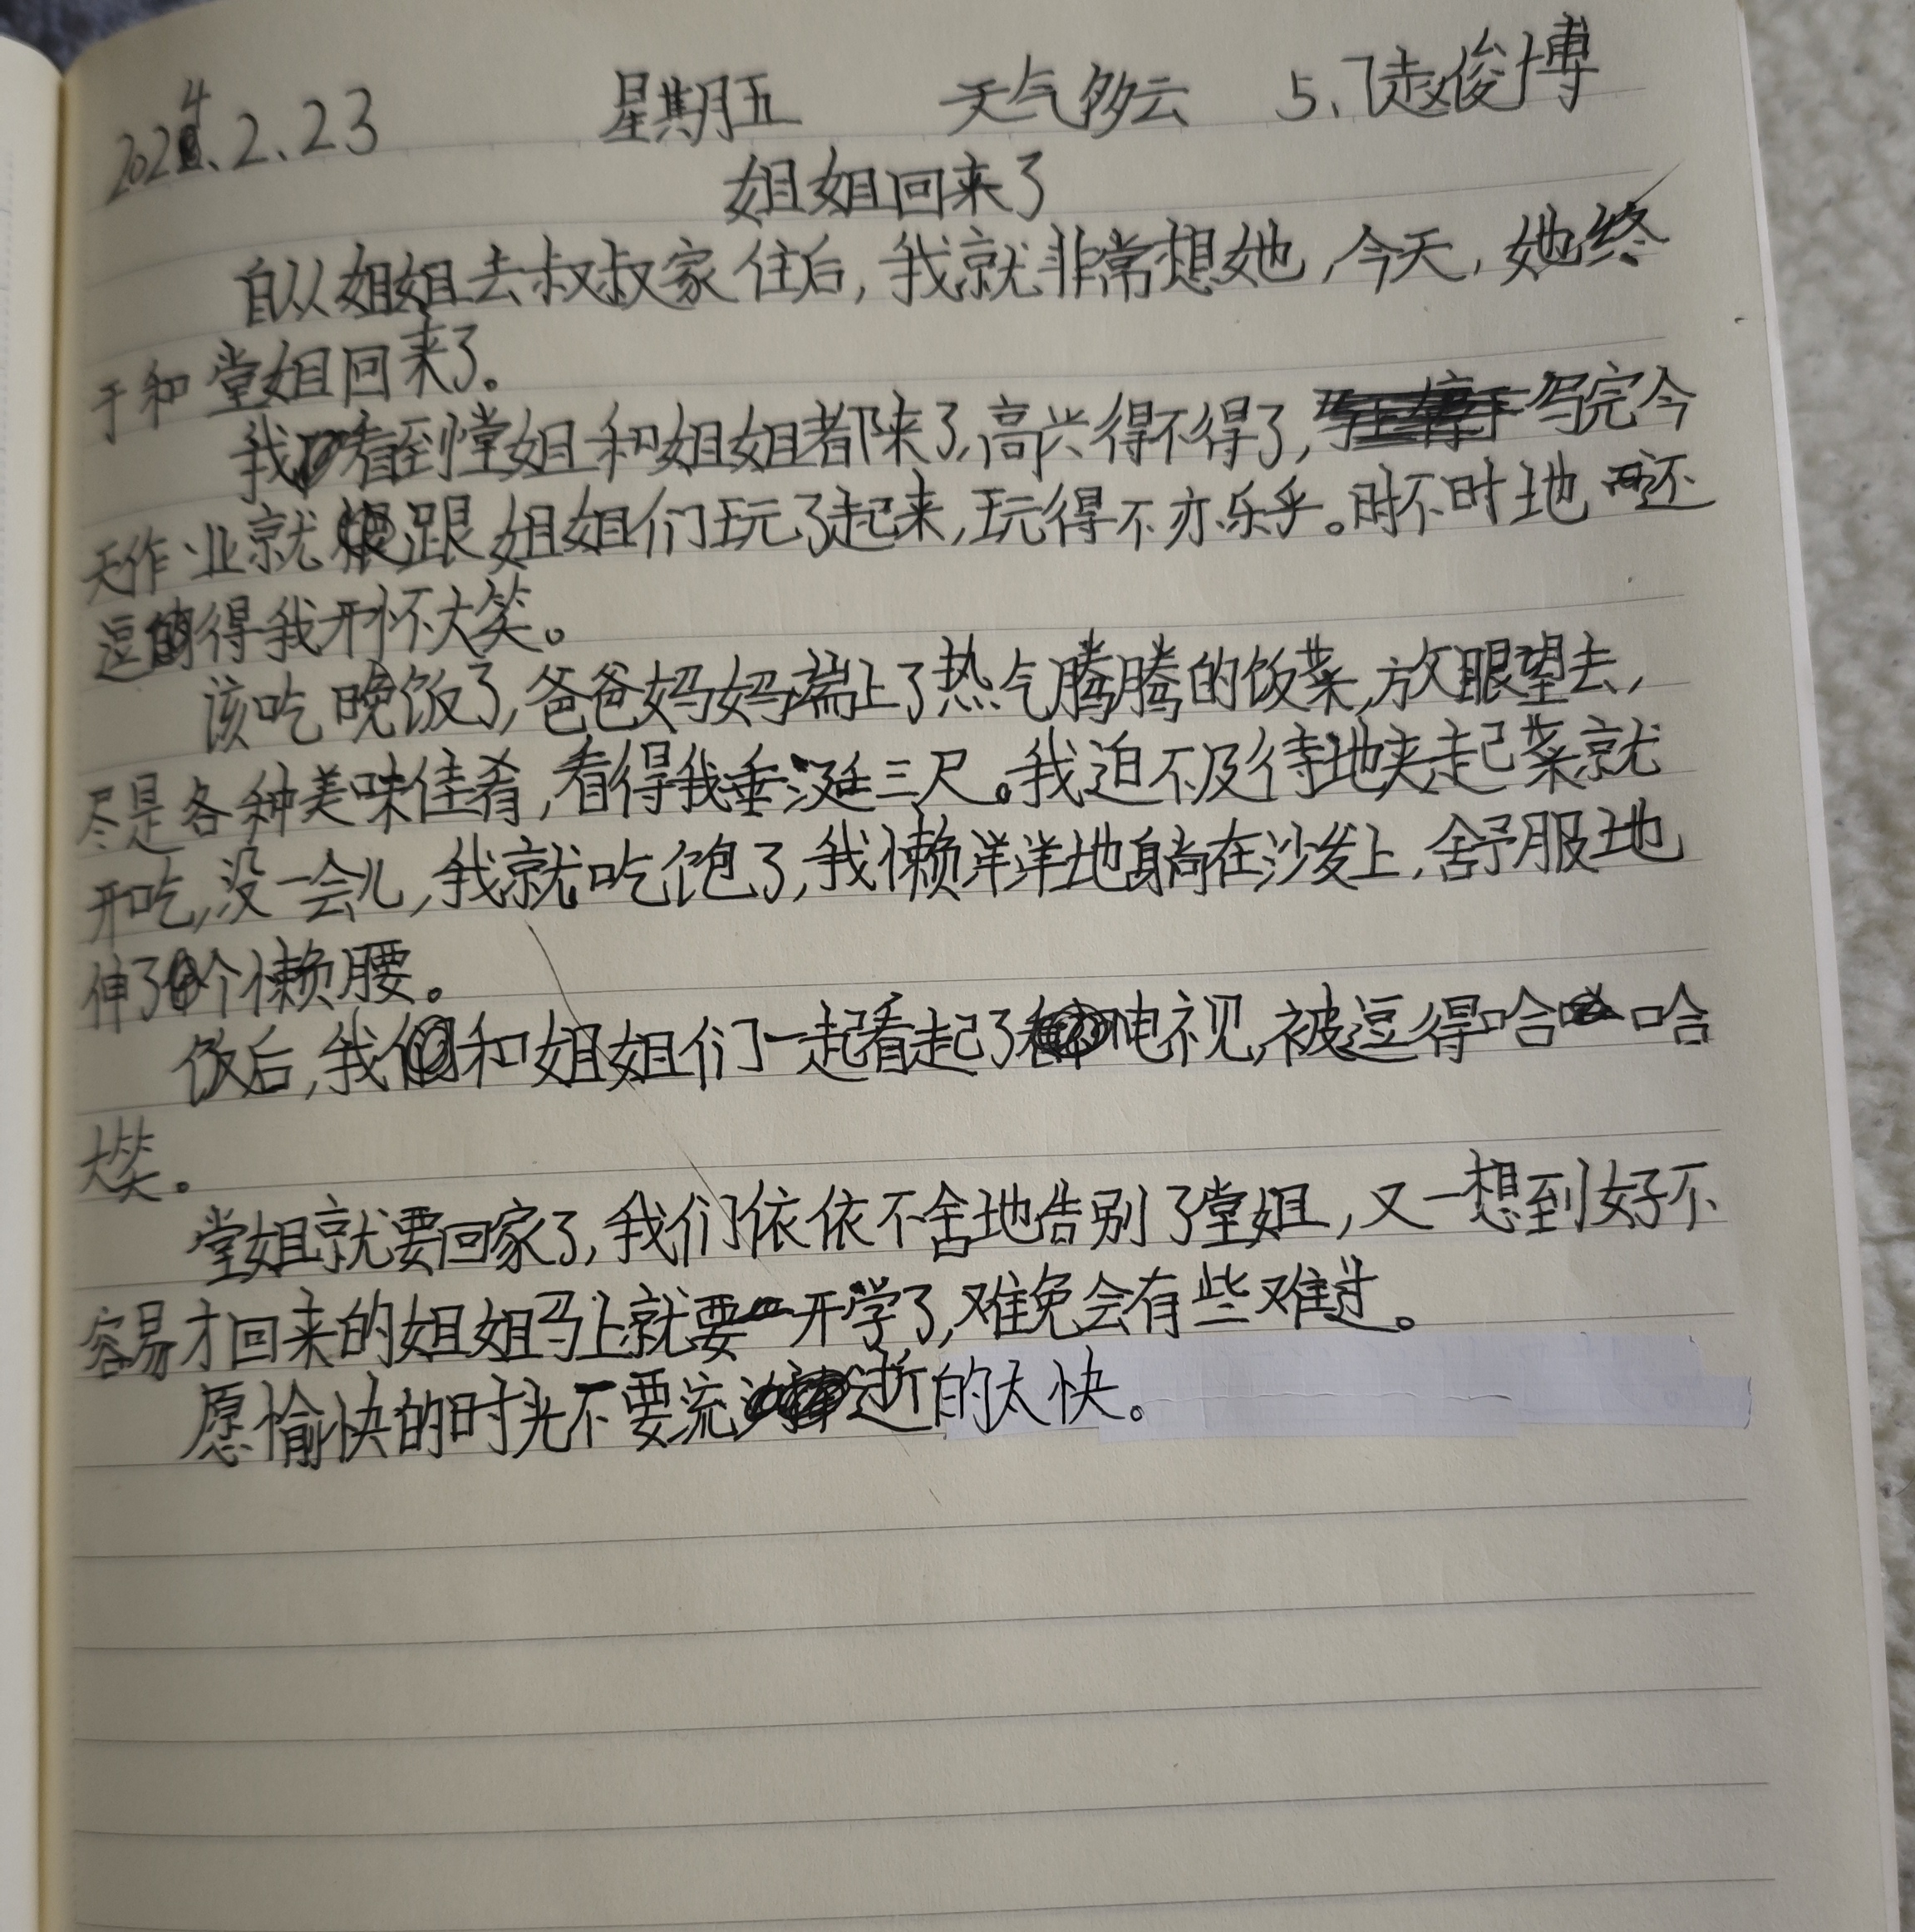 2024.2.23 星期五 天气多云 5.7赵俊博
姐姐回来了
自从姐姐去叔叔家住后,我就非常想她,今天,她终
于和堂姐回来了。
我看到堂姐和姐姐都来了,高兴得不得了,写完今
天作业就跟姐姐们玩了起来,玩得不亦乐乎。时不时地还
逗得我开怀大笑。
该吃晚饭了,爸爸妈妈端上了热气腾腾的饭菜,放眼望去,
尽是各种美味佳肴,看得我垂涎三尺。我迫不及待地夹起菜就
开吃,没一会儿,我就吃饱了,我懒洋洋地躺在沙发上,舒服地
伸了个懒腰。
饭后,我和姐姐们一起看起了电视,被逗得哈哈
大笑。
堂姐就要回家了,我们依依不舍地告别了堂姐,又一想到好不
容易才回来的姐姐马上就要开学了,难免会有些难过。
愿愉快的时光不要流逝的太快。